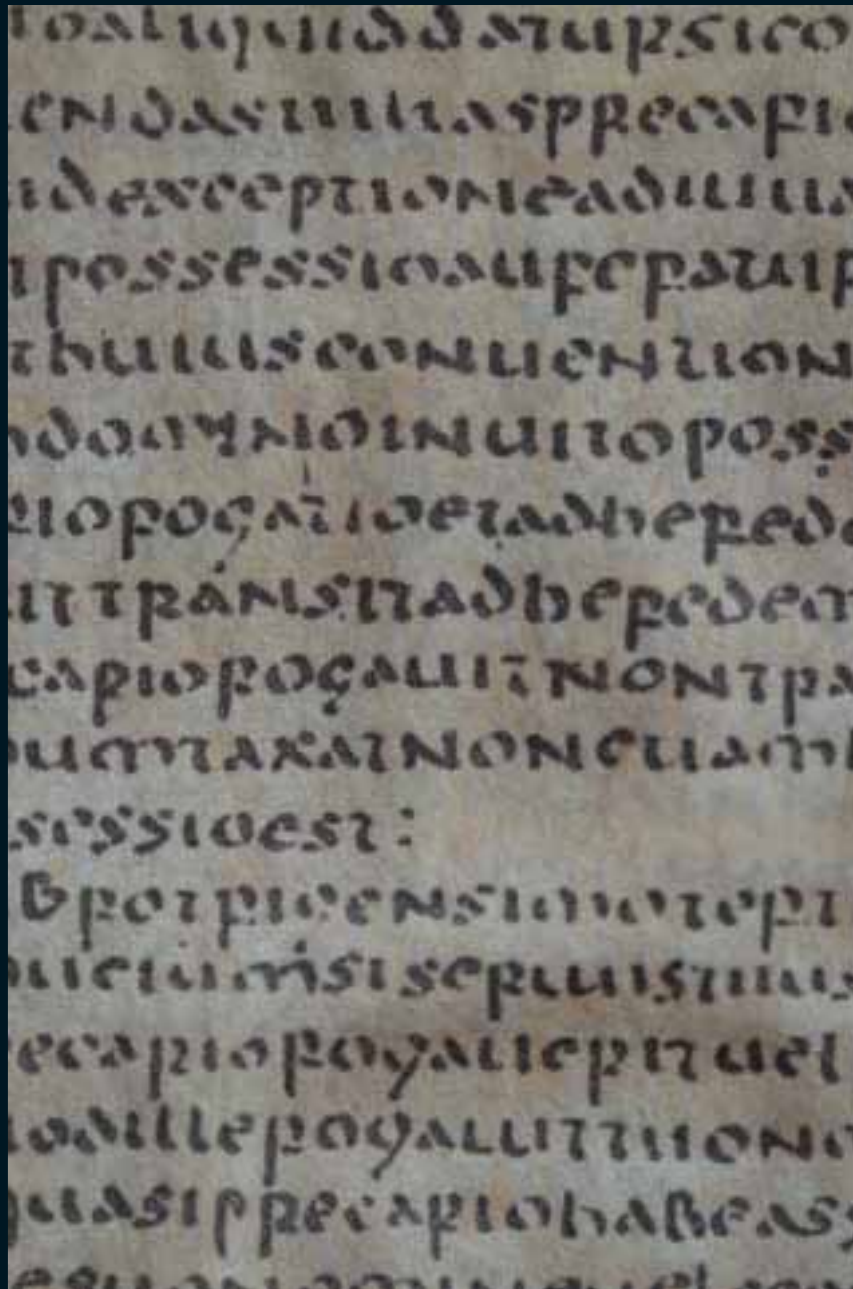 toaliquiddatursico
endasiuliasprecario
idexceptioneadiuua
ipossessioauferatur
thuiusconuention
domnoinuitoposs
riorogatioetadherede
ittransitadheredem
cariorogauitnontra
dumtaxatnonetiamh
sessioest:
brotricensimotert
uciumsiseruustuus
ecariorogauerituel
odillerogauittuono
quasiprecariohabeass